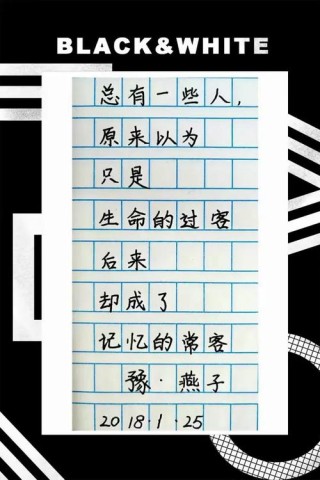 BLACK&WHITE
总有一些人，
原来以为
只是
生命的过客
后来
却成了
记忆的常客
豫·燕子
2018·1·25